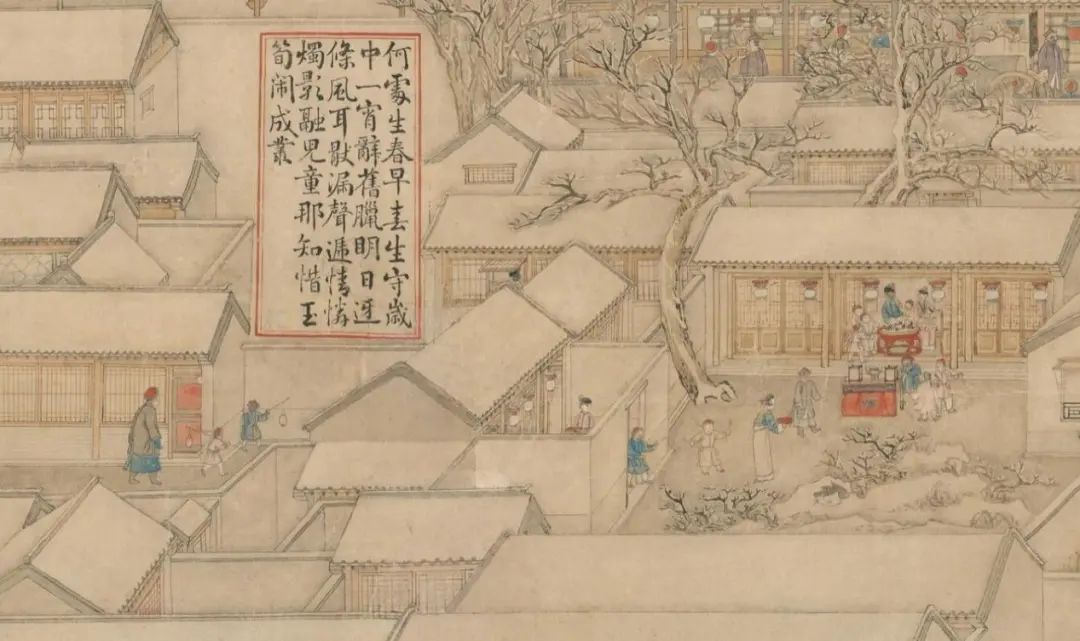 何處生春早春生守歲
中一宵辭舊臘明日迓
條風耳漏聲遞情憐
燭影融兒童那知惜玉
筍鬧成叢